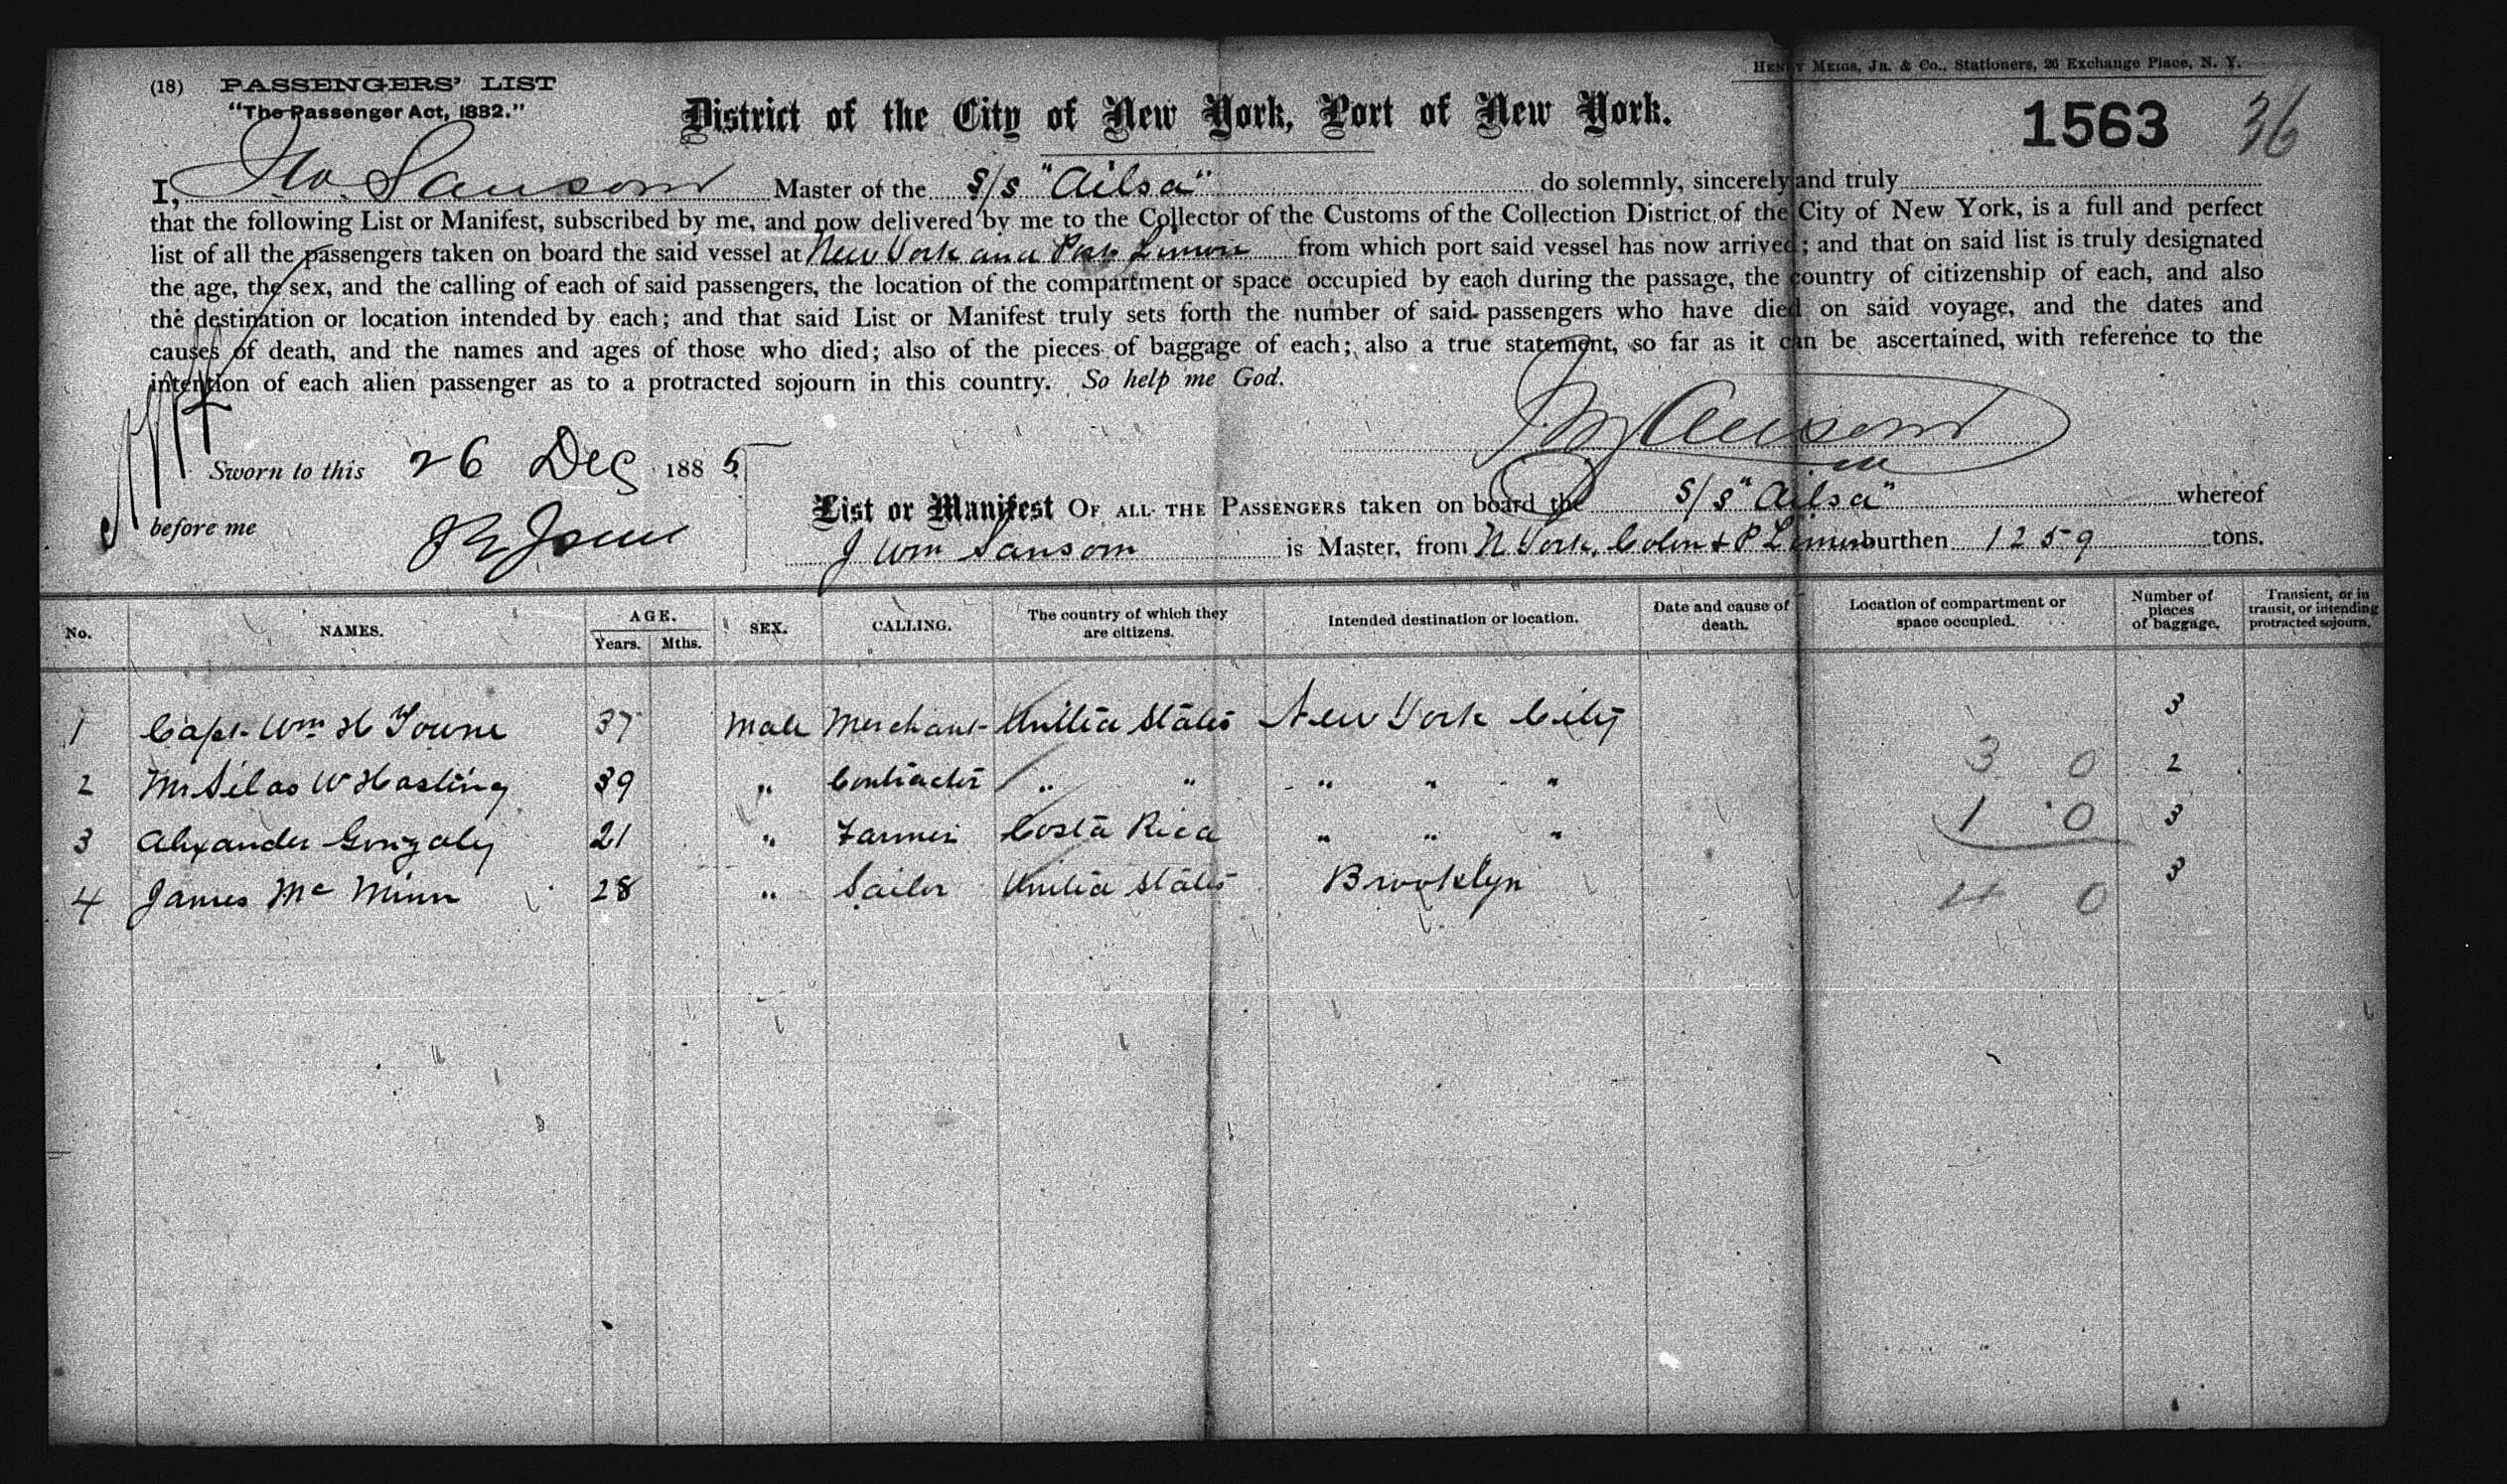 (18) PASSENGERS' LIST
"The Passenger Act, 1882."
HENRY MEIGS, JR. & CO., Stationers, 26 Exchange Place, N. Y.
District of the City of New York, Port of New York.
1563 36
I, Jno Sansom Master of the S/S "Ailsa" do solemnly, sincerely and truly
that the following List or Manifest, subscribed by me, and now delivered by me to the Collector of the Customs of the Collection District of the City of New York, is a full and perfect
list of all the passengers taken on board the said vessel at New York and Port Limon from which port said vessel has now arrived; and that on said list is truly designated
the age, the sex, and the calling of each of said passengers, the location of the compartment or space occupied by each during the passage, the country of citizenship of each, and also
the destination or location intended by each; and that said List or Manifest truly sets forth the number of said passengers who have died on said voyage, and the dates and
causes of death, and the names and ages of those who died; also of the pieces of baggage of each; also a true statement, so far as it can be ascertained, with reference to the
intention of each alien passenger as to a protracted sojourn in this country. So help me God.
Sansom
Sworn to this 26 Dec 1885
before me
List or Manifest OF ALL THE PASSENGERS taken on board the S/S "Ailsa" whereof
J Wm Sansom is Master, from N York, Colon & P Limon burthen 1259 tons.
No. NAMES. AGE. Years. Mths. SEX. CALLING. The country of which they are citizens. Intended destination or location. Date and cause of death. Location of compartment or space occupied. Number of pieces of baggage. Transient, or in transit, or intending protracted sojourn.
1 Capt. Wm H Towne 37 Male Merchant United States New York City 3
3 0
2 Mr Silas W Hasting 39 " Contractor " " " " " 2
1 0
3 Alexander Gonzalez 21 " Farmer Costa Rica " " " 3
4 James Mc Minn 28 " Sailor United States Brooklyn 3
4 0